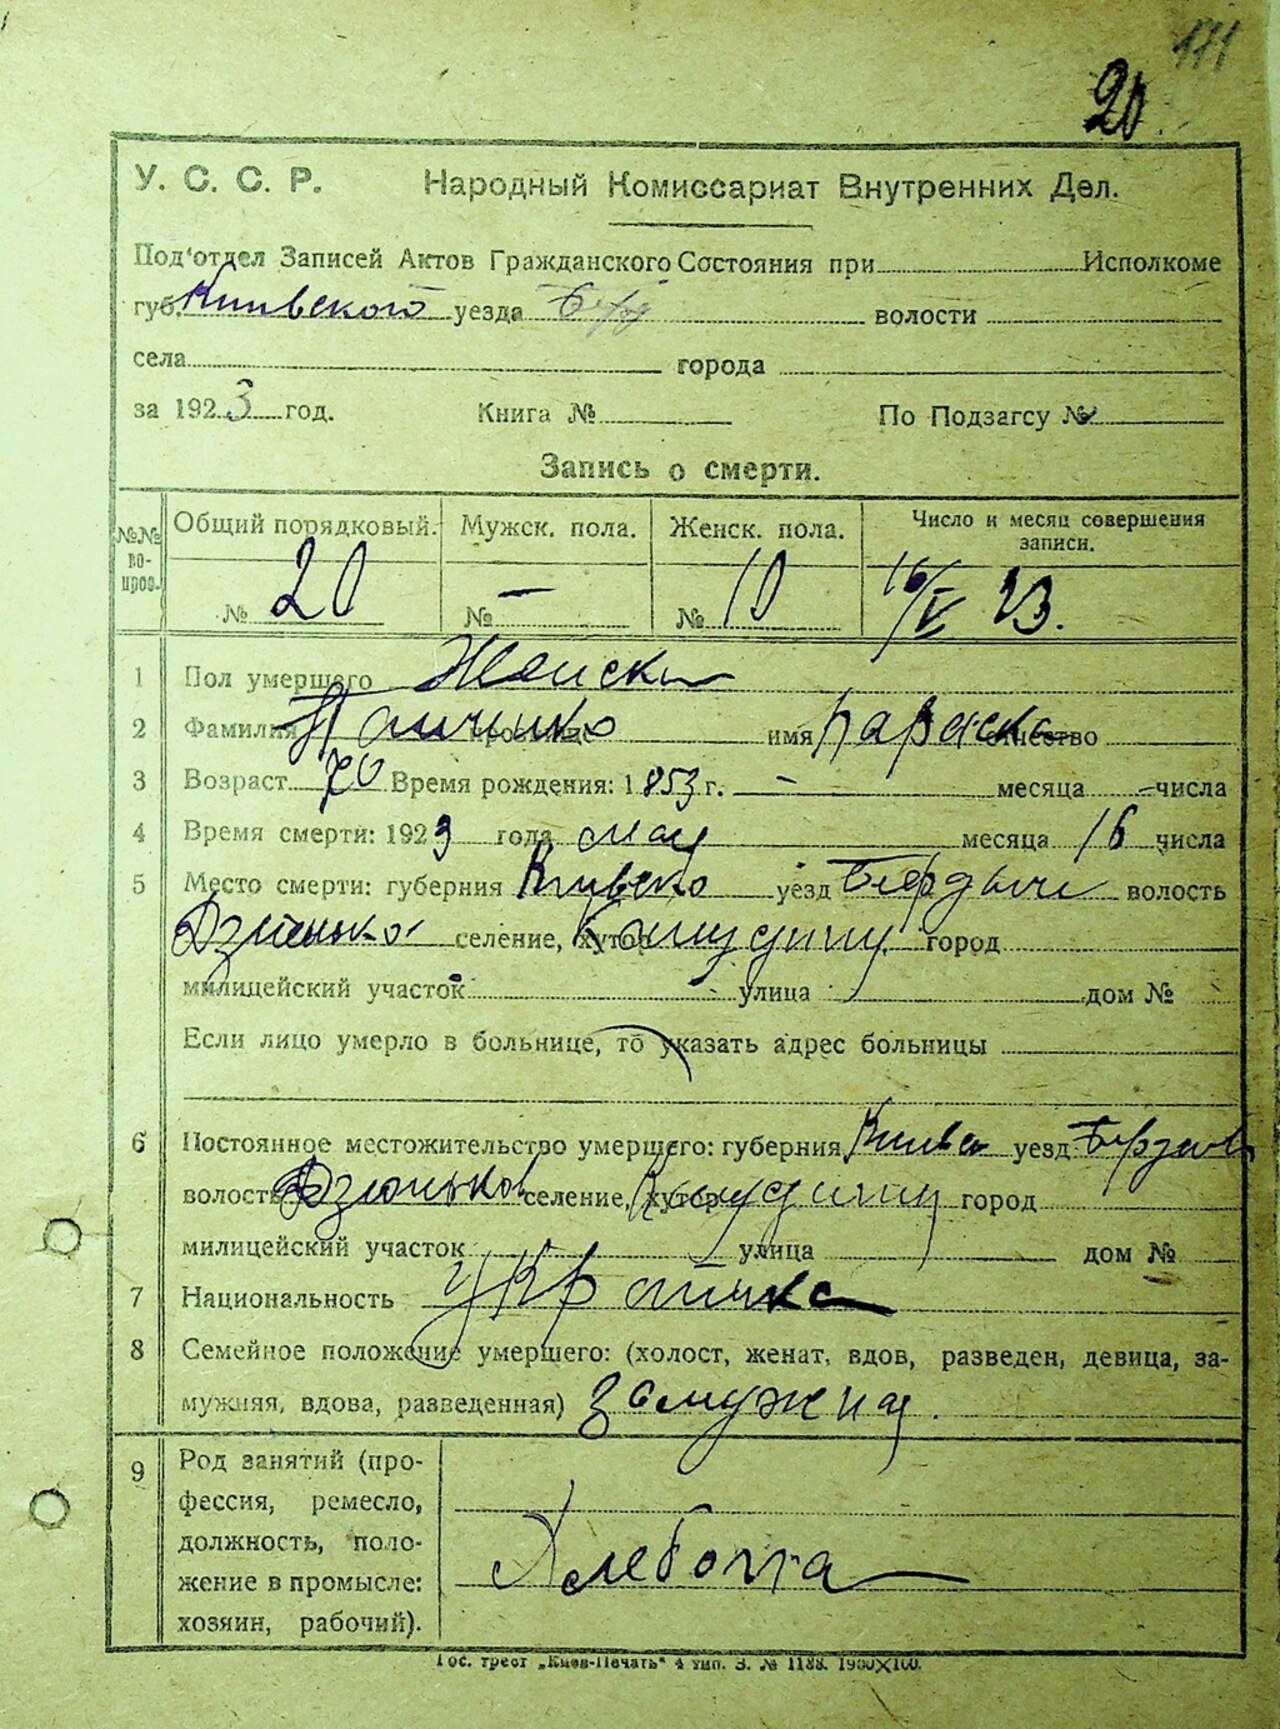 111
20
У. С. С. Р. Народный Комиссариат Внутренних Дел.
Под‘отдел Записей Актов Гражданского Состояния при Исполкоме
губ. Киевского уезда Берд волости
села города
за 1923 год. Книга № По Подзагсу №
Запись о смерти.
№№ вопров. Общий порядковый. Мужск. пола. Женск. пола. Число и месяц совершения записи.
№ 20 № — № 10 16/V 23.
1 Пол умершего Женски
2 Фамилия прозвище имя Параска отчество
3 Возраст 70 Время рождения: 1853 г. — месяца — числа
4 Время смерти: 1923 года мая месяца 16 числа
5 Место смерти: губерния Киевско уезд Бердыч волость
Дзюнько селение, хутор город
милицейский участок улица дом №
Если лицо умерло в больнице, то указать адрес больницы
6 Постоянное местожительство умершего: губерния Киевс уезд
волость Дзюньков селение, хутор город
милицейский участок улица дом №
7 Национальность Украинка
8 Семейное положение умершего: (холост, женат, вдов, разведен, девица, за-
мужняя, вдова, разведенная) замужняя.
9 Род занятий (про-
фессия, ремесло,
должность, поло-
жение в промысле:
хозяин, рабочий).
Гос. трест „Киев-Печать“ 4 тип. З. № 1188. 1900X100.